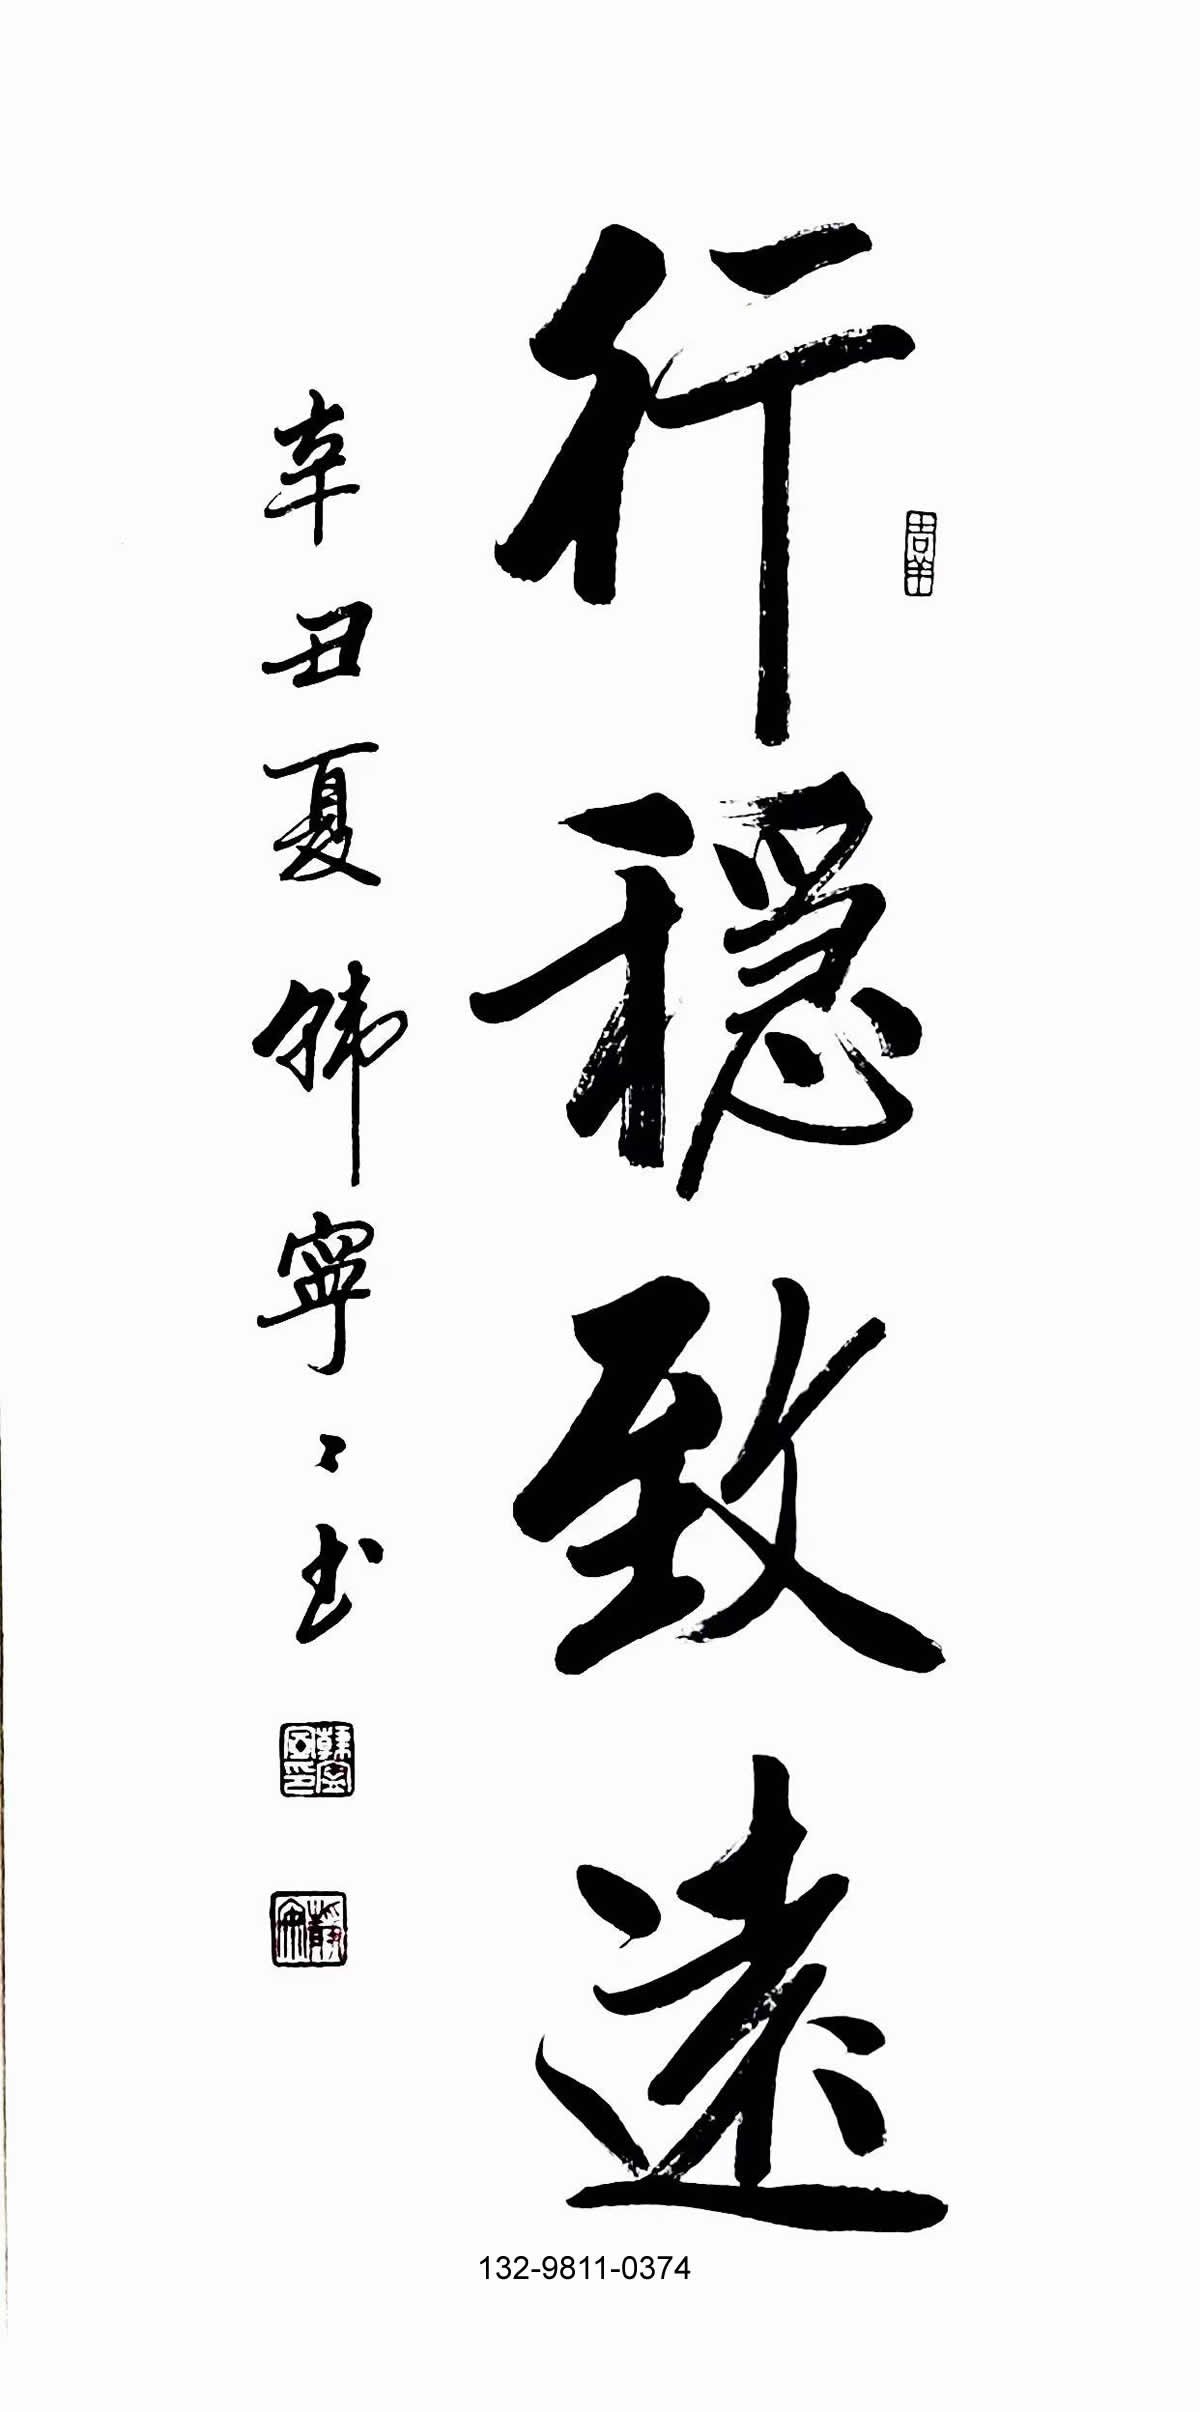 行穩致遠
辛丑夏 韩寧寧书
132-9811-0374